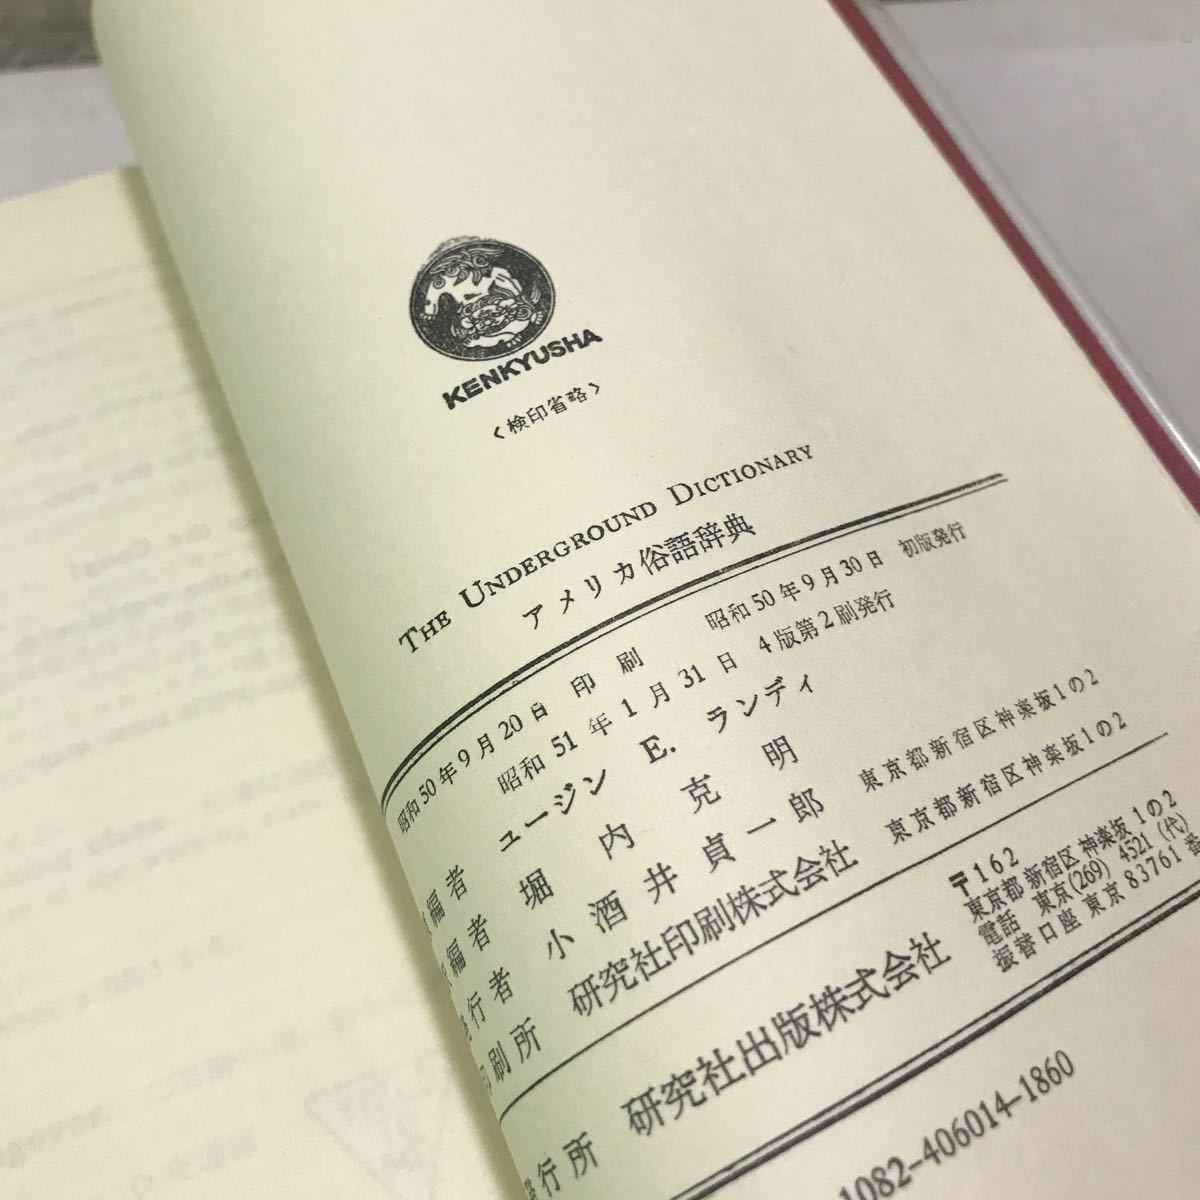 KENKYUSHA
<検印省略>
THE UNDERGROUND DICTIONARY
アメリカ俗語辞典
昭和50年9月20日 印刷 昭和50年9月30日 初版発行
昭和51年1月31日 4版第2刷発行
編者 ユージン E. ランディ
編者 堀内克明
行者 小酒井貞一郎 東京都新宿区神楽坂1の2
印刷所 研究社印刷株式会社 東京都新宿区神楽坂1の2
発行所 研究社出版株式会社
〒162
東京都新宿区神楽坂1の2
電話 東京(269) 4521 (代)
振替口座 東京 83761 番
1082-406014-1860